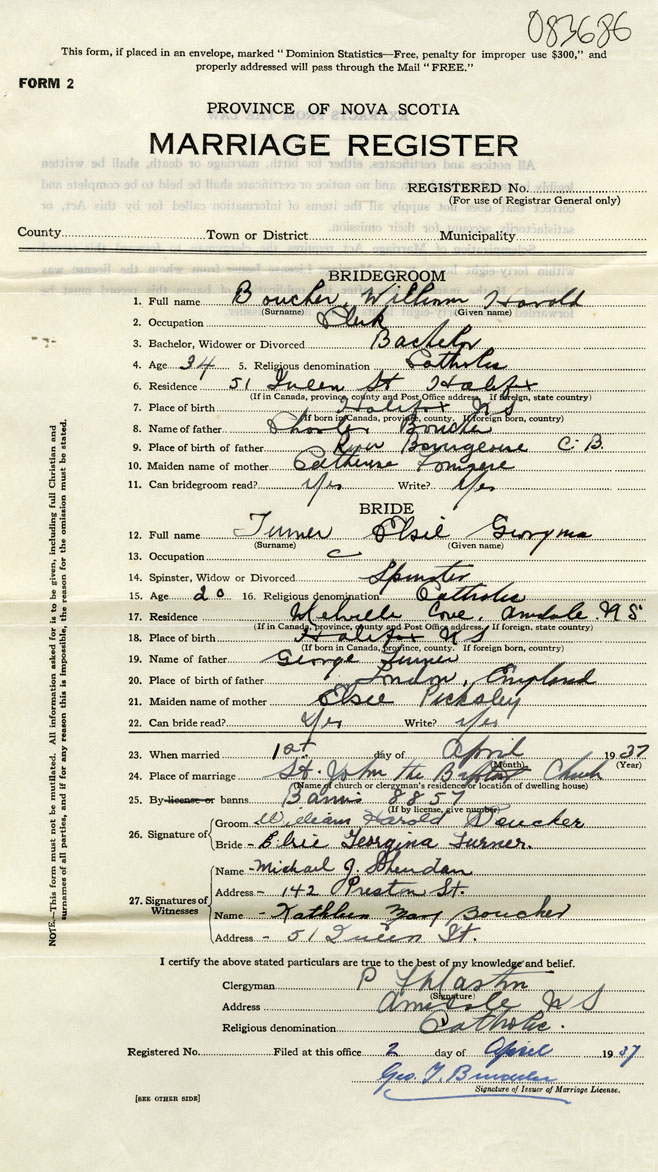 083686
This form, if placed in an envelope, marked "Dominion Statistics—Free, penalty for improper use $300," and
properly addressed will pass through the Mail "FREE."
FORM 2
PROVINCE OF NOVA SCOTIA
MARRIAGE REGISTER
REGISTERED No.
(For use of Registrar General only)
County Town or District Municipality
BRIDEGROOM
1. Full name Boucher, William Harold
(Surname) (Given name)
2. Occupation Clerk
3. Bachelor, Widower or Divorced Bachelor
4. Age 24 5. Religious denomination Catholic
6. Residence 51 Queen St Halifax
(If in Canada, province, county and Post Office address. If foreign, state country)
7. Place of birth Halifax N S
(If born in Canada, province, county. If foreign born, country)
8. Name of father Charles Boucher
9. Place of birth of father River Bourgeoise C. B.
10. Maiden name of mother Catherine
11. Can bridegroom read? Yes Write? Yes
BRIDE
12. Full name Turner Elsie Georgina
(Surname) (Given name)
13. Occupation
14. Spinster, Widow or Divorced Spinster
15. Age 20 16. Religious denomination Catholic
17. Residence Melville Cove, Armdale. N S
(If in Canada, province, county and Post Office address. If foreign, state country)
18. Place of birth Halifax N S
(If born in Canada, province, county. If foreign born, country)
19. Name of father George Turner
20. Place of birth of father London, England
21. Maiden name of mother Elsie Picksley
22. Can bride read? Yes Write? Yes
23. When married 1st day of April 1937
(Month) (Year)
24. Place of marriage St. John the Baptist Church
(Name of church or clergyman's residence or location of dwelling house)
25. By license or banns Banns 8857
(If by license, give number)
26. Signature of
Groom William Harold Boucher
Bride - Elsie Georgina Turner.
27. Signatures of Witnesses
Name - Michael J. Sheridan
Address - 142 Preston St.
Name - Kathleen Mary Boucher
Address - 51 Queen St.
I certify the above stated particulars are true to the best of my knowledge and belief.
Clergyman P
(Signature)
Address Armdale N S
Religious denomination Catholic.
Registered No. Filed at this office 2 day of April 1937
Geo. T.
Signature of Issuer of Marriage License.
[SEE OTHER SIDE]
NOTE—This form must not be mutilated. All information asked for is to be given, including full Christian and
surnames of all parties, and if for any reason this is impossible, the reason for the omission must be stated.